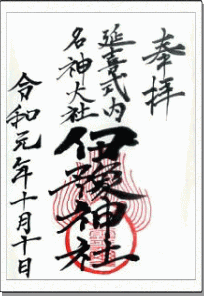 奉拝
延喜式内
名神大社
伊豫神社
令和元年十月十日